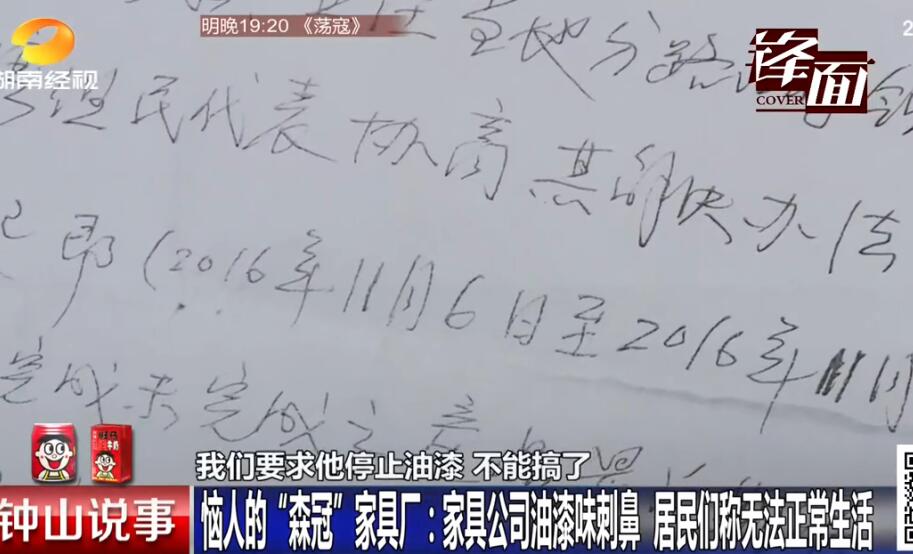 明晚19:20 《荡寇》
湖南经视
锋面
COVER
2
至地分路
民代表 协商 其解决办法
即 (2016年11月6日至2016年11月
完成未完成之
我们要求他停止油漆 不能搞了
钟山说事
恼人的“森冠”家具厂：家具公司油漆味刺鼻 居民们称无法正常生活